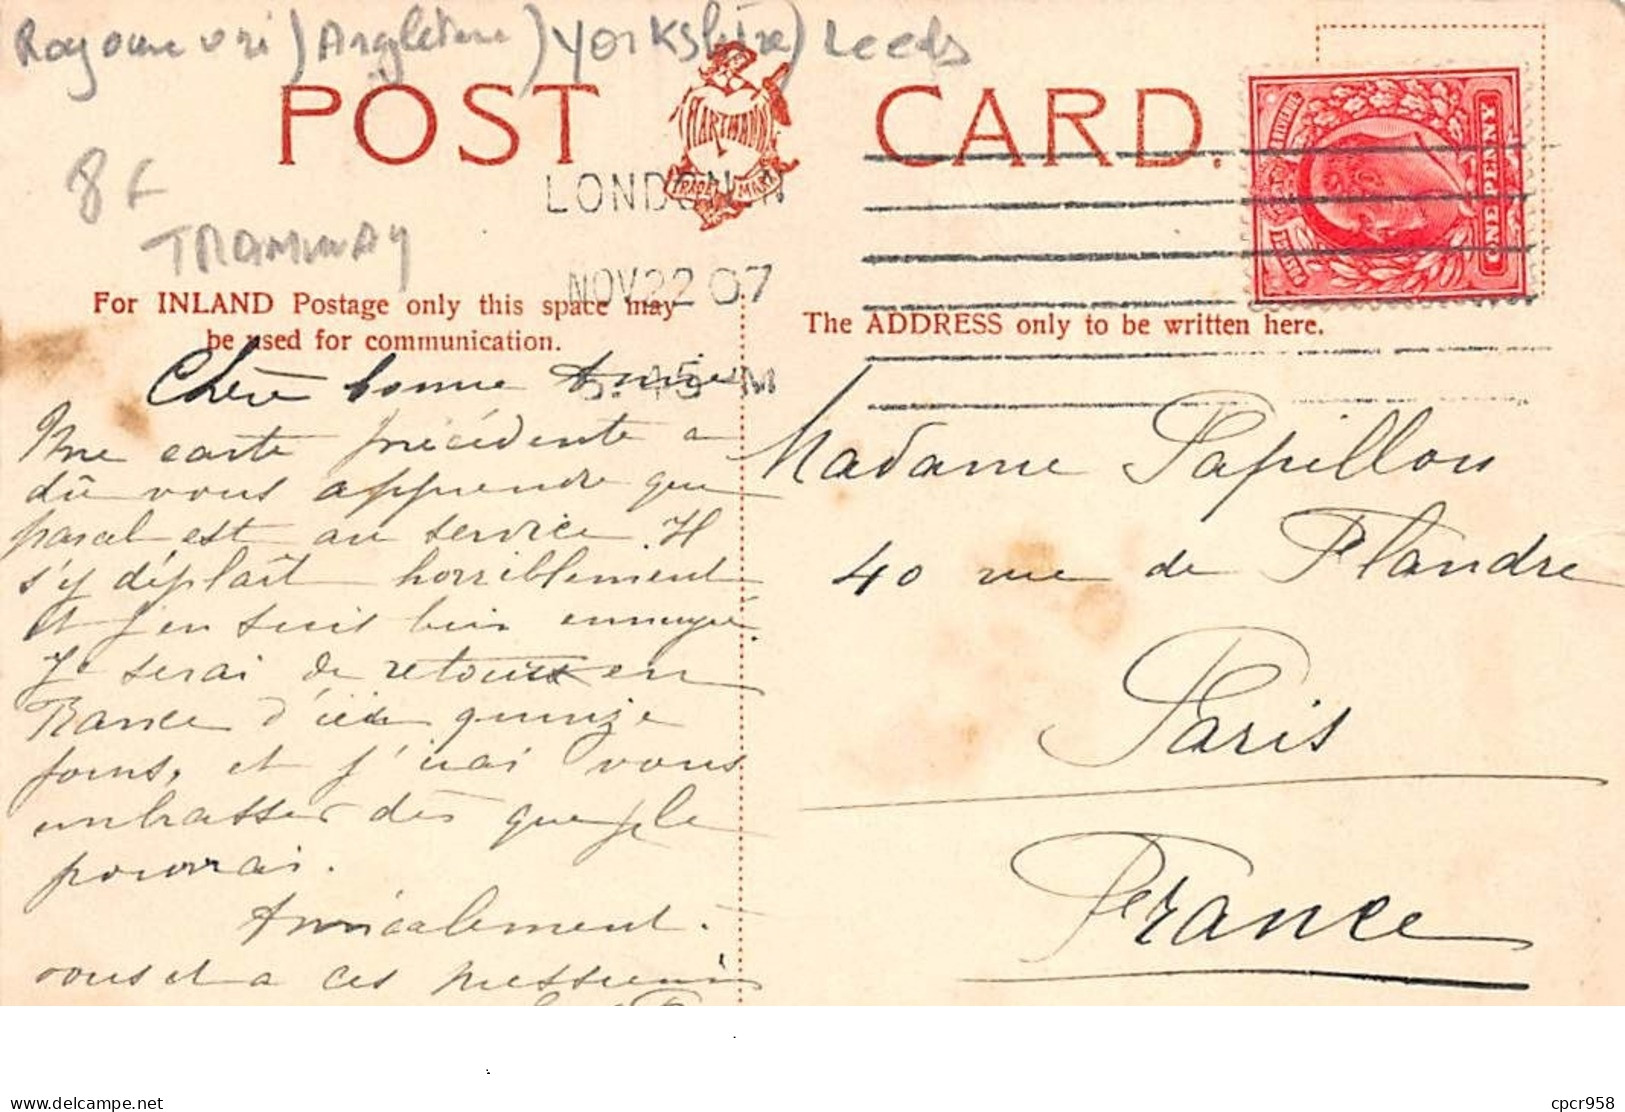 Royaume uni) Angleterre) Yorkshire) Leeds
POST CARD.
HARTMANN
TRADE MARK
8 F
TRAMWAY
LONDON.N
NOV 22 07
5.45 PM
ONE PENNY
For INLAND Postage only this space may
be used for communication.
The ADDRESS only to be written here.
Chère bonne Amie
Une carte précédente a
dû vous apprendre que
pascal est au service. Il
s'y déplaît horriblement
et j'en suis bien ennuyé.
Je serai de retour en
France d'ici quinze
jours, et j'irai vous
embrasser dès que je le
pourrai.
Amicalement.
vous et a ces messieurs
Madame Papillon
40 rue de Flandre
Paris
France
www.delcampe.net
cpcr958